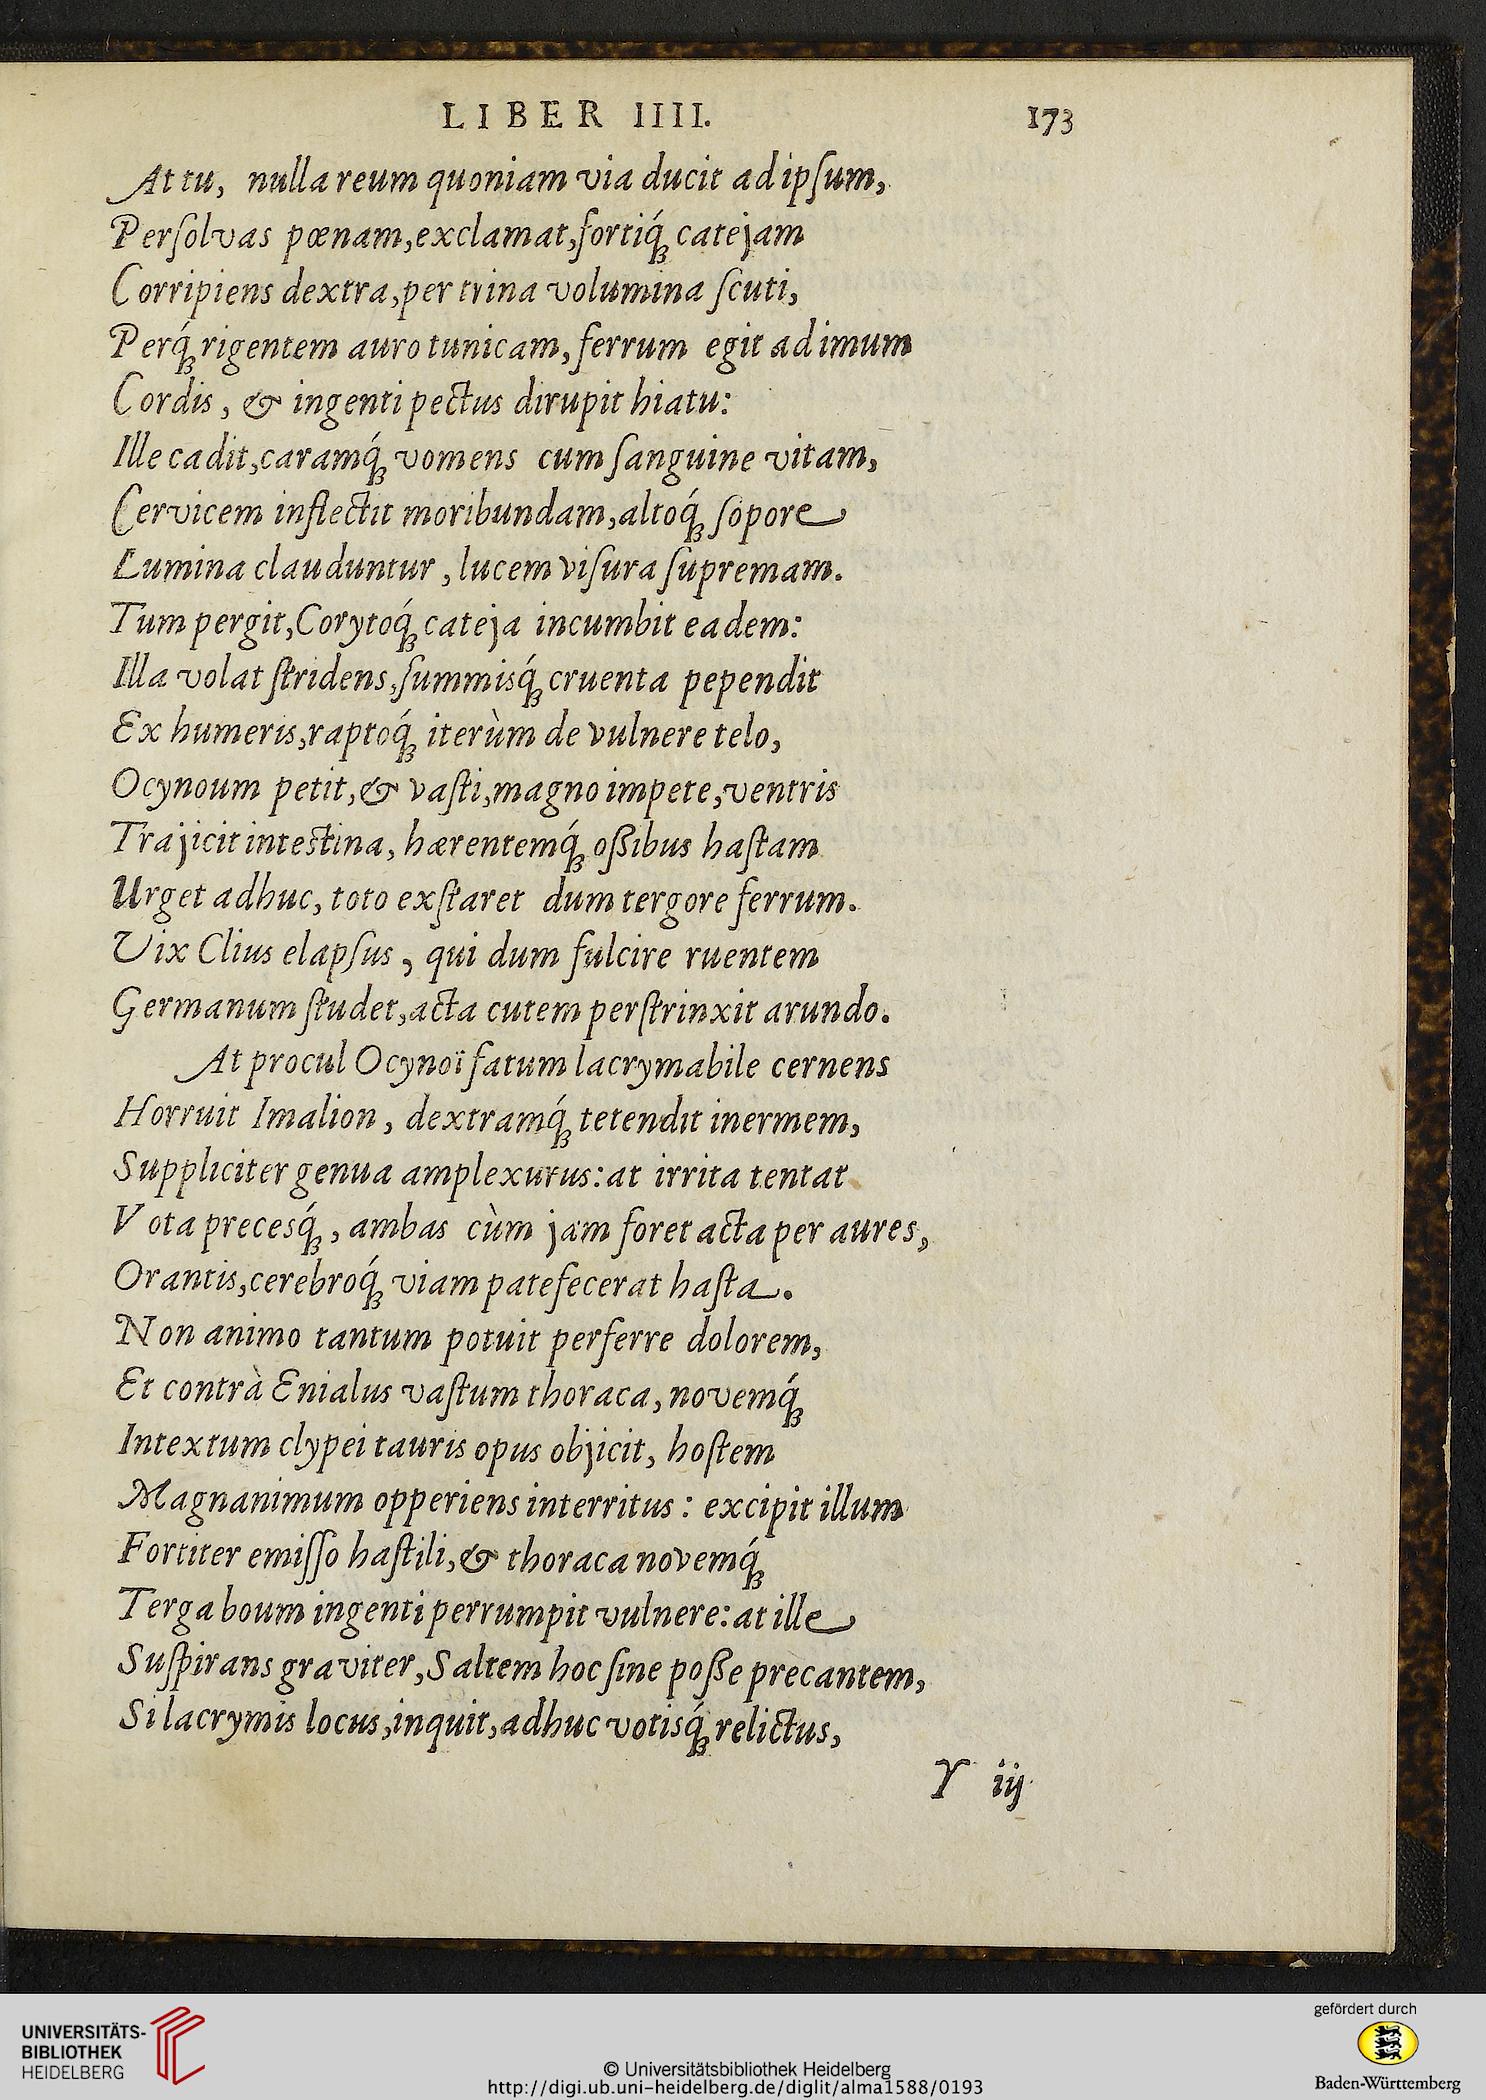 LIBER IIII. 173
At tu, nulla reum quoniam via ducit ad ipſum,
Perſolvas pœnam, exclamat, fortiq́ꝫ catejam
Corripiens dextra, per trina volumina ſcuti,
Perq́ꝫ rigentem auro tunicam, ferrum egit ad imum
Cordis, & ingenti pectus dirupit hiatu:
Ille cadit, caramq́ꝫ vomens cum ſanguine vitam,
Cervicem inflectit moribundam, altoq́ꝫ ſopore
Lumina clauduntur, lucem viſura ſupremam.
Tum pergit, Corytoq́ꝫ cateja incumbit eadem:
Illa volat ſtridens, ſummisq́ꝫ cruenta pependit
Ex humeris, raptoq́ꝫ iterùm de vulnere telo,
Ocynoum petit, & vaſti, magno impete, ventris
Trajicit intestina, hærentemq́ꝫ oßibus haſtam
Urget adhuc, toto exſtaret dum tergore ferrum.
Vix Clius elapſus, qui dum fulcire ruentem
Germanum ſtudet, acta cutem perſtrinxit arundo.
At procul Ocynoï fatum lacrymabile cernens
Horruit Imalion, dextramq́ꝫ tetendit inermem,
Suppliciter genua amplexurus: at irrita tentat
Vota precesq́ꝫ, ambas cùm jam foret acta per aures,
Orantis, cerebroq́ꝫ viam patefecerat haſta.
Non animo tantum potuit perferre dolorem,
Et contrà Enialus vaſtum thoraca, novemq́ꝫ
Intextum clypei tauris opus objicit, hoſtem
Magnanimum opperiens interritus: excipit illum
Fortiter emiſſo haſtili, & thoraca novemq́ꝫ
Terga boum ingenti perrumpit vulnere: at ille
Suſpirans graviter, Saltem hoc ſine poße precantem,
Si lacrymis locus, inquit, adhuc votisq́ꝫ relictus,
Y iij
UNIVERSITÄTS-
BIBLIOTHEK
HEIDELBERG
© Universitätsbibliothek Heidelberg
http://digi.ub.uni-heidelberg.de/diglit/alma1588/0193
gefördert durch
Baden-Württemberg